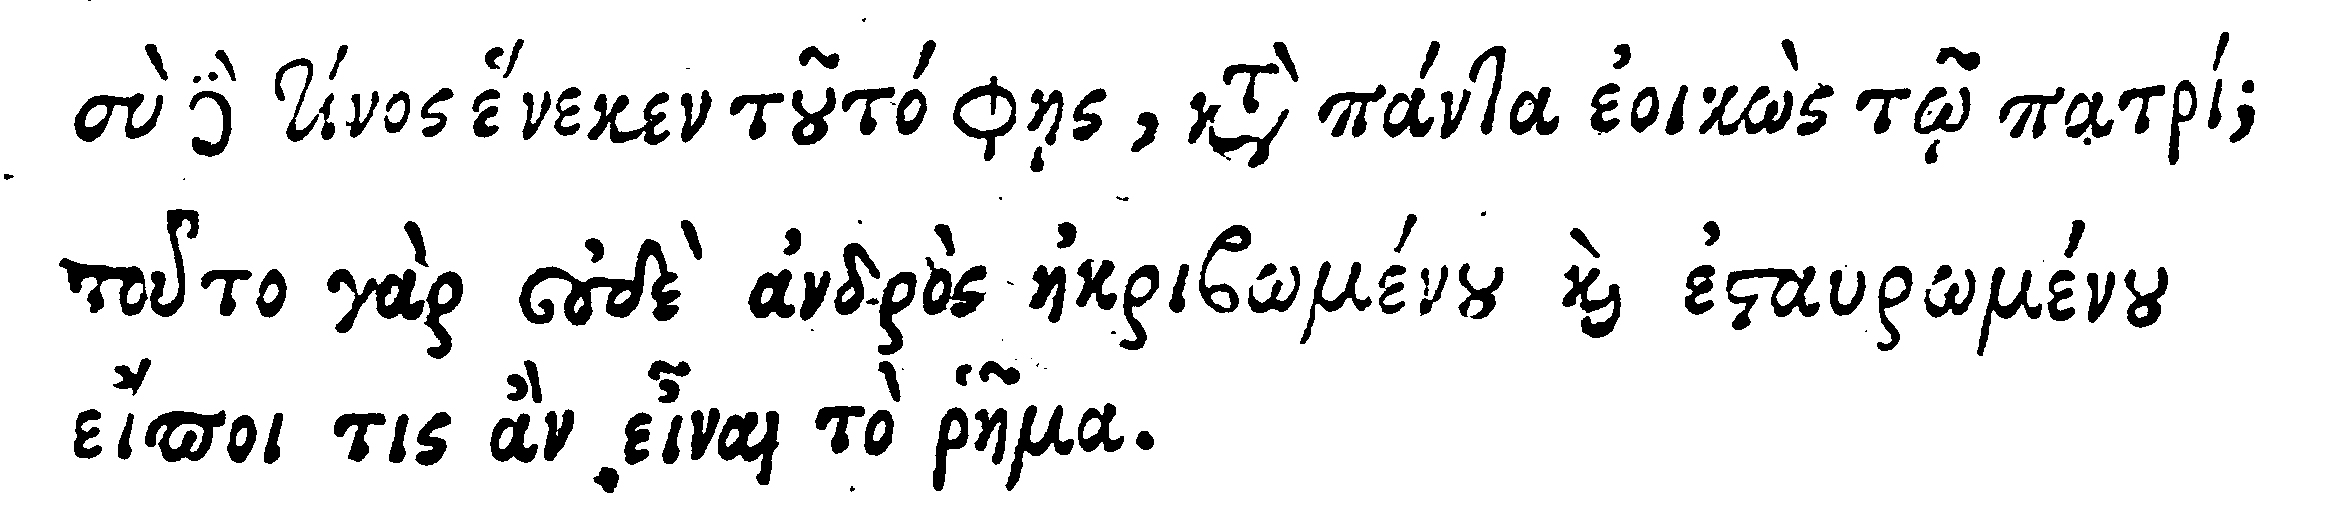 σὺ δὲ τίνος ἕνεκεν τοῦτό φῃς, κατὰ πάντα ἐοικὼς τῷ πατρί;
τοῦτο γὰρ οὐδὲ ἀνδρὸς ἠκριβωμένου καὶ ἐσταυρωμένου
εἴποι τις ἂν εἶναι τὸ ῥῆμα.